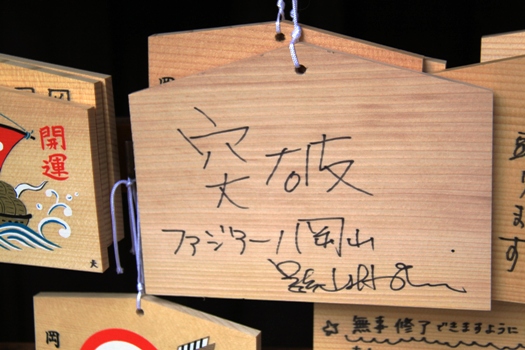 突破
ファジアーノ岡山
開運
岡
岡
☆無事修了できますように
ます